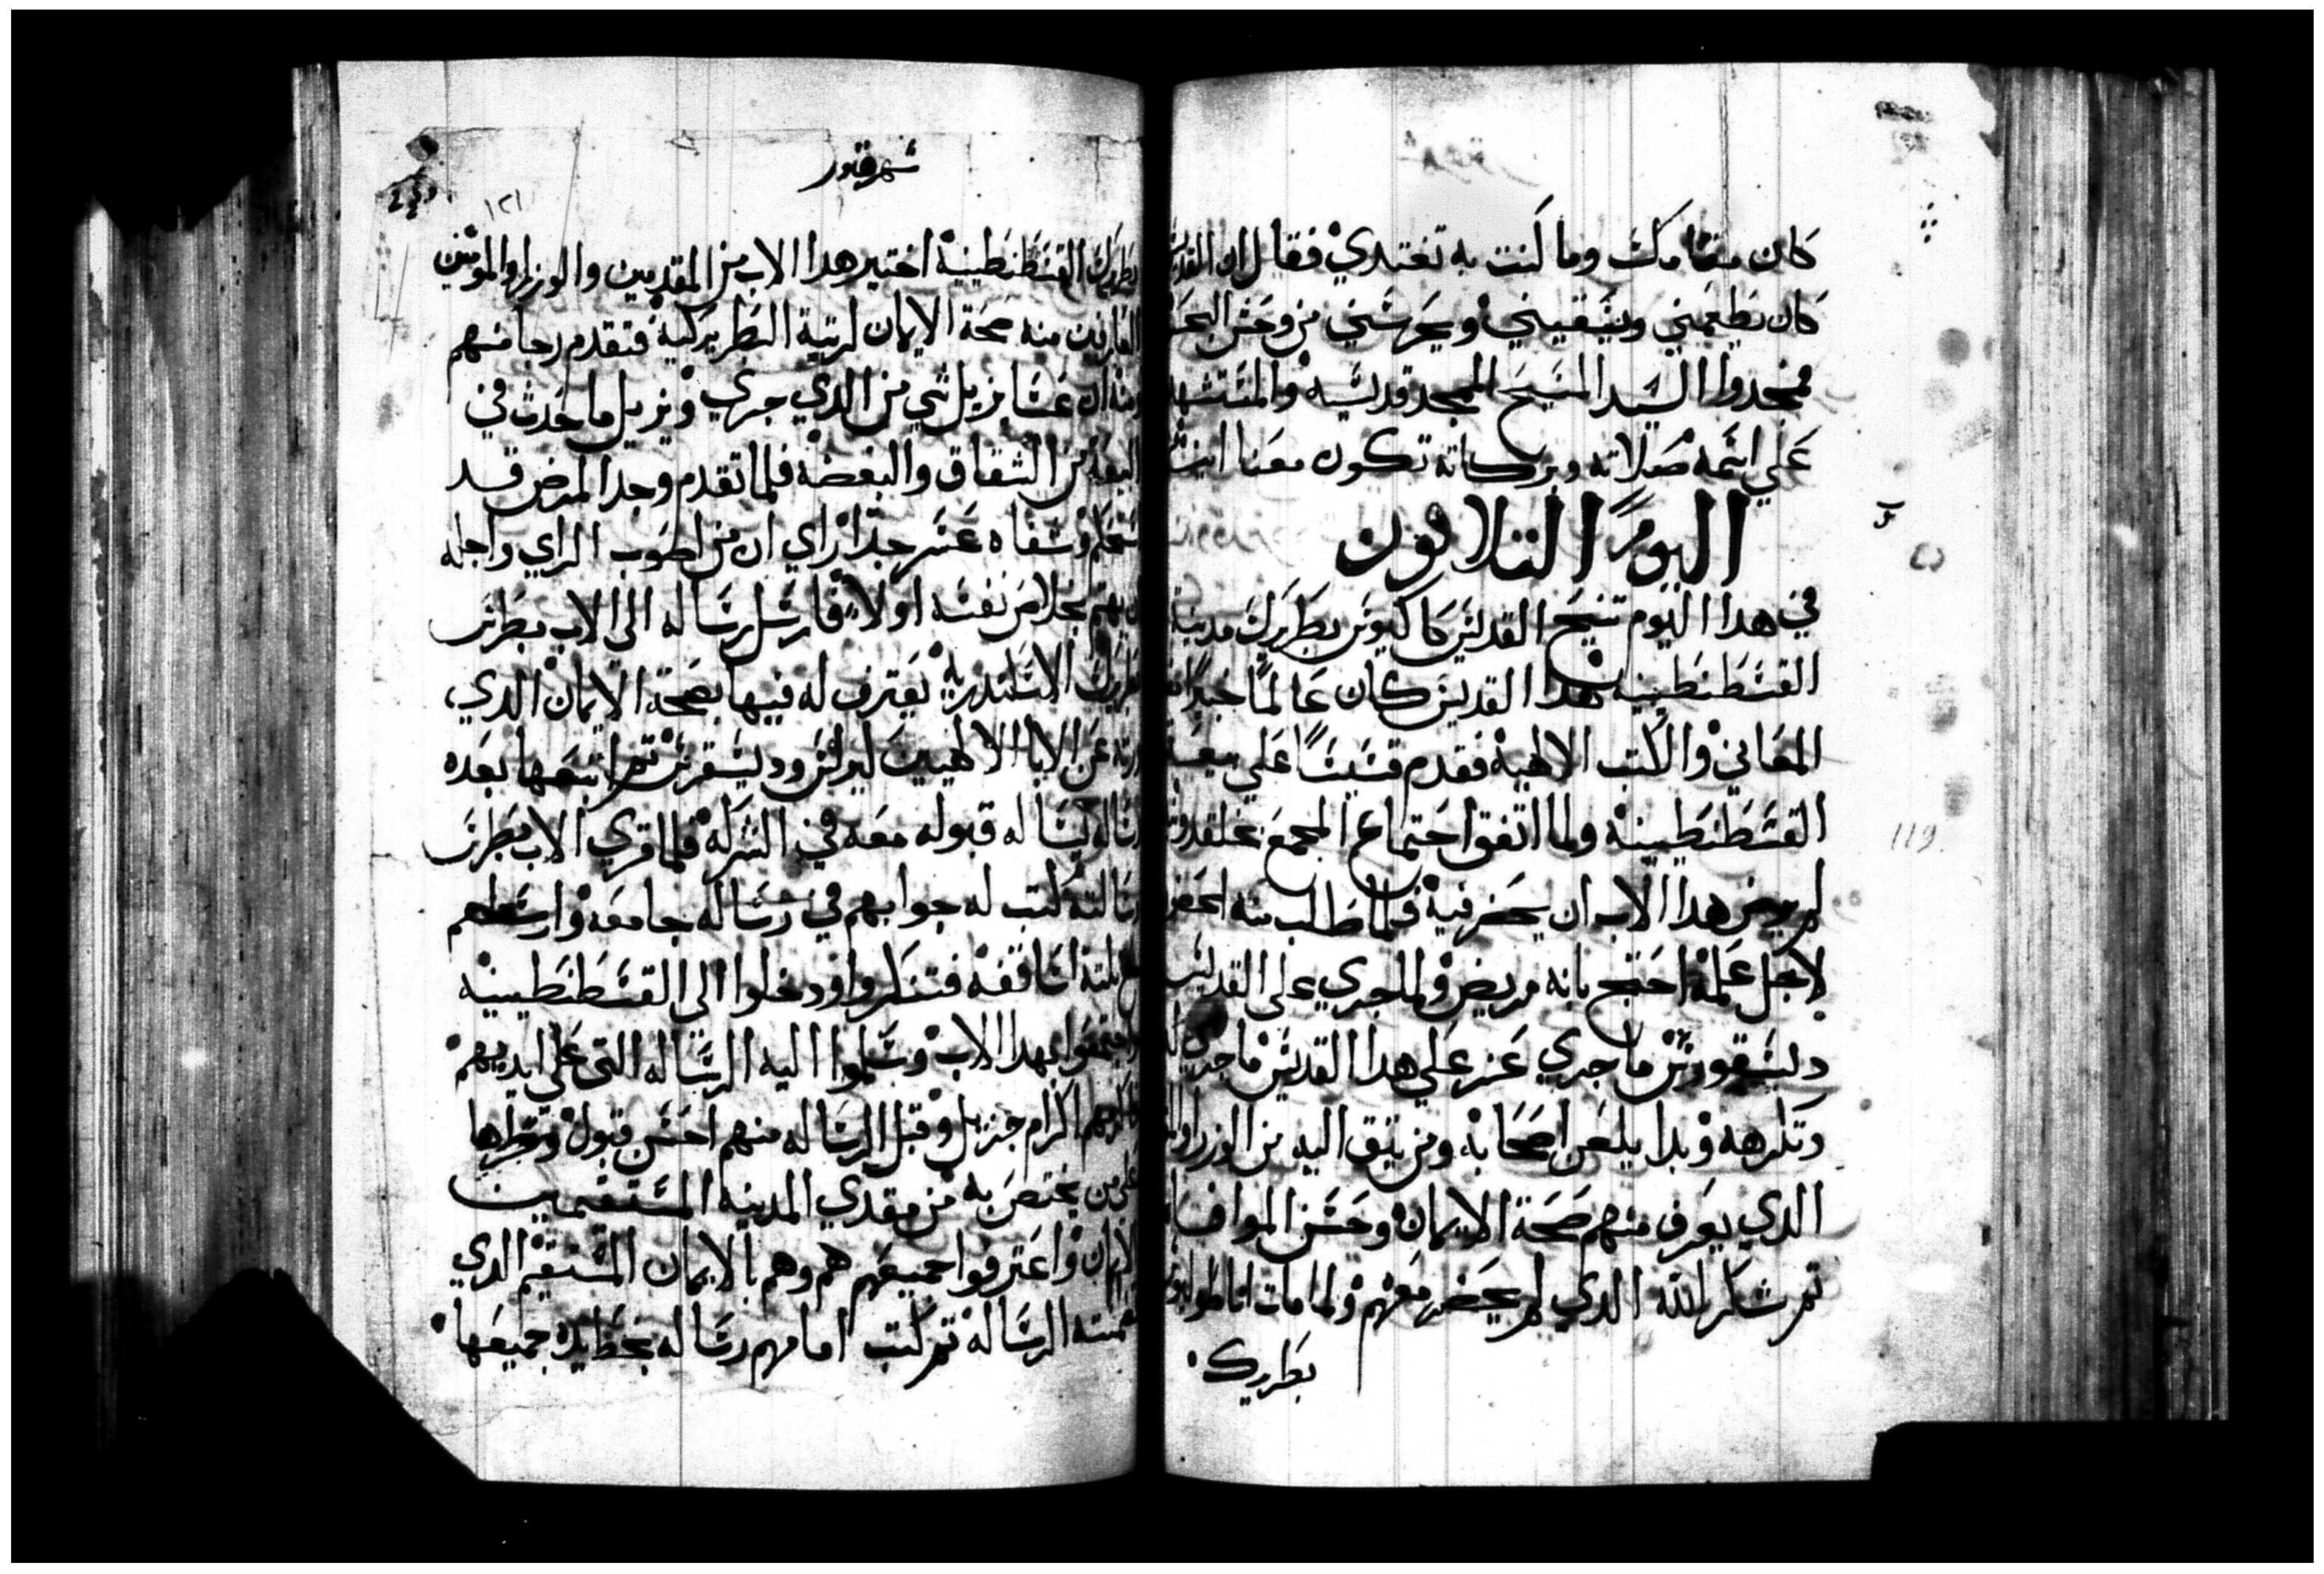 كان مقامك وما كنت به تغتدي فقال ان القديس
كان يطعمني ويسقيني ويحرسني من وحش البحر
فمجدوا السيد المسيح الممجد قديسيه والمستشهد
علي اسمه صلاته وبركاته تكون معنا امين
اليوم التلاتون
في هدا اليوم تنيح القديس كاكيوس بطريرك مدينة
القسطنطينيه هدا القديس كان عالمًا خبيرًا
المعاني والكتب الالهية فقدم قسيسًا علي بيعة
القسطنطينية ولما اتفق احتماع المجمع بخلقدونيه
لم يرض هدا الاب ان يحضر فيه فلما طلب منه الحضور
لاجل علمه احتج بانه مريض ولما جري على القديس
ديسقورس ما جري عسر علي هدا القديس ما جري
وتكرهه وبدا يلعن اصحابه ومن يتق اليه من الوزراء
الدي يعرف منهم صحة الايمان وحسن الموافا
تم شاكر لله الدي لم يحضر معهم ولما مات اناطوليوس
بطريرك
شهر هتور
١٢١
بطريرك القسطنطينية اختير هدا الاب من المقدمين والوزرا والمومنين
العارفين منه صحة الايمان لرتبة البطريركية فتقدم رجا منهم
منه ان عسا يزيل شي من الدي جري ويزيل ما حدث في
البيعة من الشقاق والبغضة فلما تقدم وجد المرض قد
استحكم وشفاه عسر جدًا راي ان من اصوب الراي واجله
ان يهتم بخلاص نفسه اولاً فارسل رساله الى الاب بطرس
بطريرك الاسكندرية يعترف له فيها بصحة الايمان الدي
ورته عن الابا الالهيين كيرلس وديسقرس تم اتبعها بعده
رساله يساله قبوله معه في الشركة فلما قري الاب بطرس
رسالته كتب له جوابهم في رساله جامعه وارسلهم
مع تلتة اساقفة فتنكروا ودخلوا الي القسطنطينية
واجتمعوا بهدا الاب وسلموا اليه الرساله التي علي ايديهم
فاكرمهم اكرام جزيل وقبل الرساله منهم احسن قبول وقراها
علي من يختص به من مقدمي المدينه المستقيمين
الايمان واعترفوا جميعهم هم وهم بالايمان المستقيم الدي
تضمنته الرسالة تم كتب امامهم رساله بخط يده جميعها
119